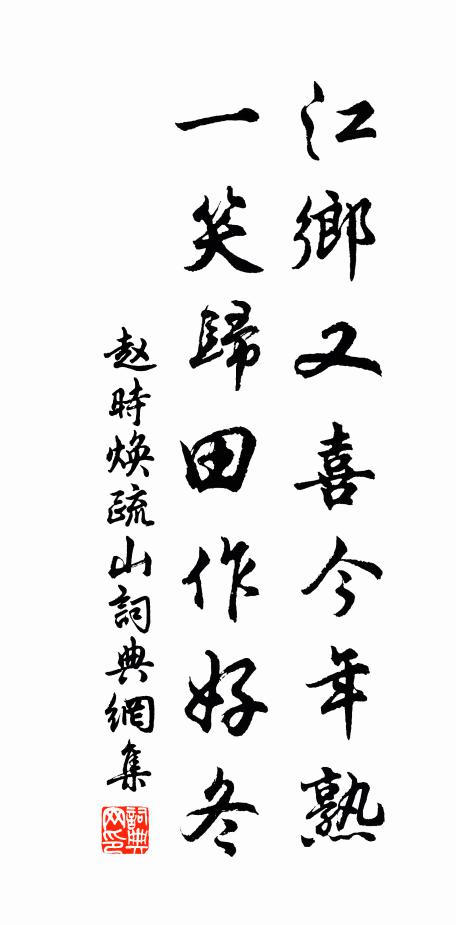 江鄉又喜今年熟
一笑歸田作好冬
赵時焕疏山詞典網集
詞典網印